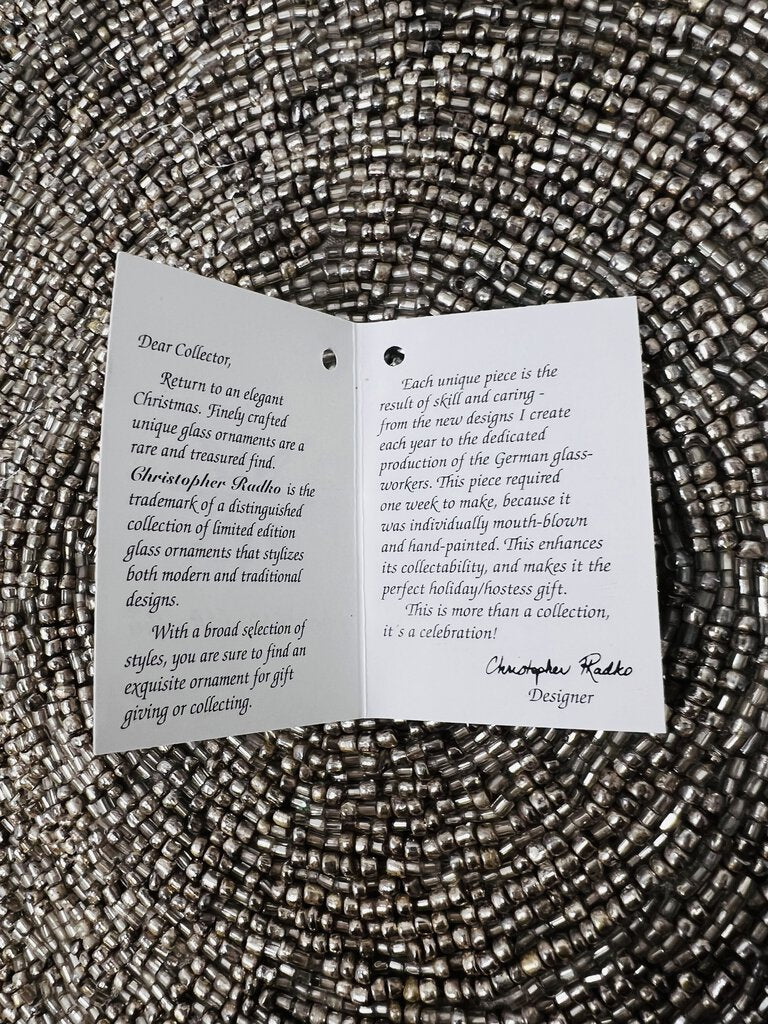 Dear Collector,
Return to an elegant
Christmas. Finely crafted
unique glass ornaments are a
rare and treasured find.
Christopher Radko is the
trademark of a distinguished
collection of limited edition
glass ornaments that stylizes
both modern and traditional
designs.
With a broad selection of
styles, you are sure to find an
exquisite ornament for gift
giving or collecting.
Each unique piece is the
result of skill and caring -
from the new designs I create
each year to the dedicated
production of the German glass-
workers. This piece required
one week to make, because it
was individually mouth-blown
and hand-painted. This enhances
its collectability, and makes it the
perfect holiday/hostess gift.
This is more than a collection,
it's a celebration!
Christopher Radko
Designer